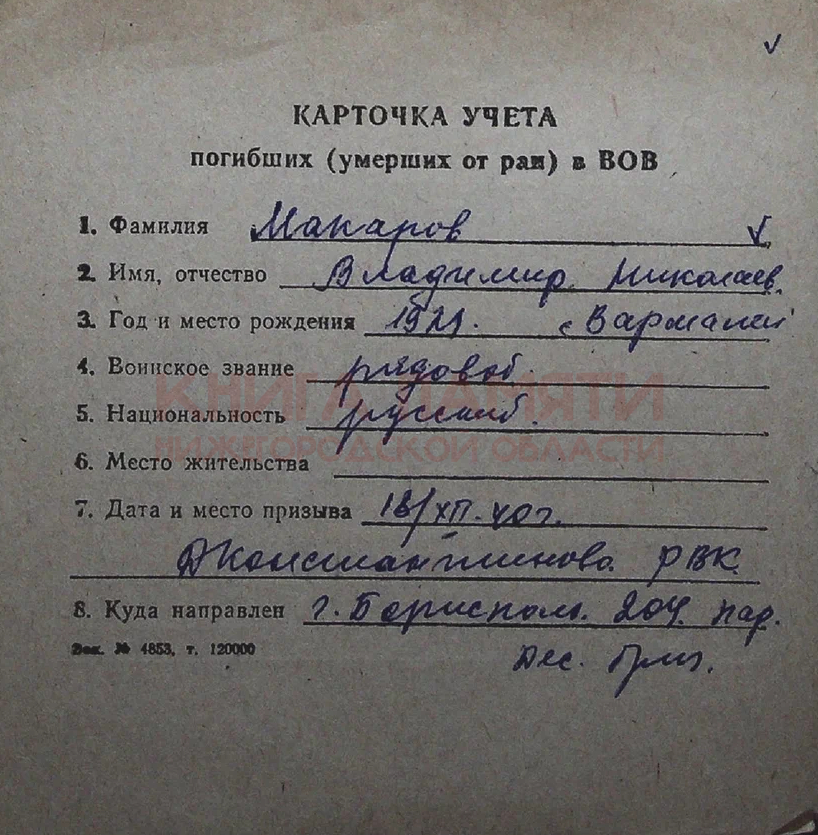 КАРТОЧКА УЧЕТА
погибших (умерших от ран) в ВОВ
1. Фамилия Макаров
2. Имя, отчество Владимир Николаев.
3. Год и место рождения 1921. с Вармалеи
4. Воинское звание рядовой.
КНИГА ПАМЯТИ
5. Национальность русский.
НИЖЕГОРОДСКОЙ ОБЛАСТИ
6. Место жительства
7. Дата и место призыва 18/XII-40г.
Д Константиново. РВК.
8. Куда направлен г. Борисполь. 204 пар.
Зак. № 4853, т. 120000
Дес. бриг.